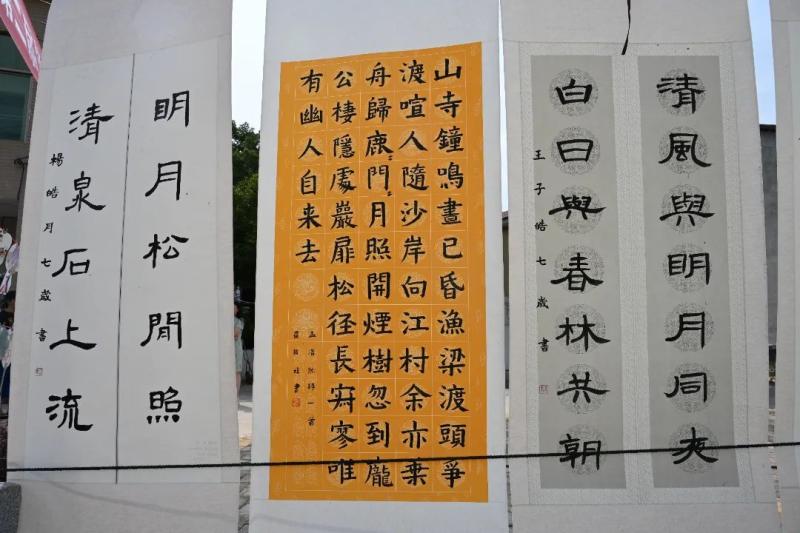 眀月松閒照
清泉石上流
楊皓月七歲書
山寺鐘鳴晝已昏漁梁渡頭爭
渡喧人隨沙岸向江村余亦乗
舟歸鹿〻門〻月照開煙樹忽到龐
公棲隱處巖扉松径長寂寥唯
有幽人自来去
孟浩然詩一首
清風與眀月同夜
白日與春林共朝
王子皓七歲書